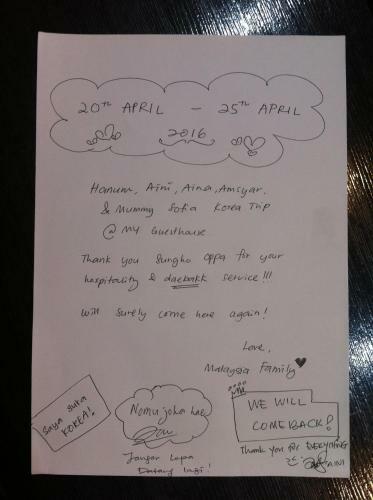 20TH APRIL - 25TH APRIL
2016
Hanum, Aini, Aina, Amsyar,
& Mummy Sofia Korea Trip
@ MY Guesthouse
Thank you Sungho Oppa for your
hospitality & daebakk service!!!
Will surely come here again!
Love,
Malaysia Family
Saya suka
KOREA!
Nomu joha hae
Jangan Lupa
Datang lagi!
WE WILL
COME BACK!
Thank you for EVERYTHING
AINI